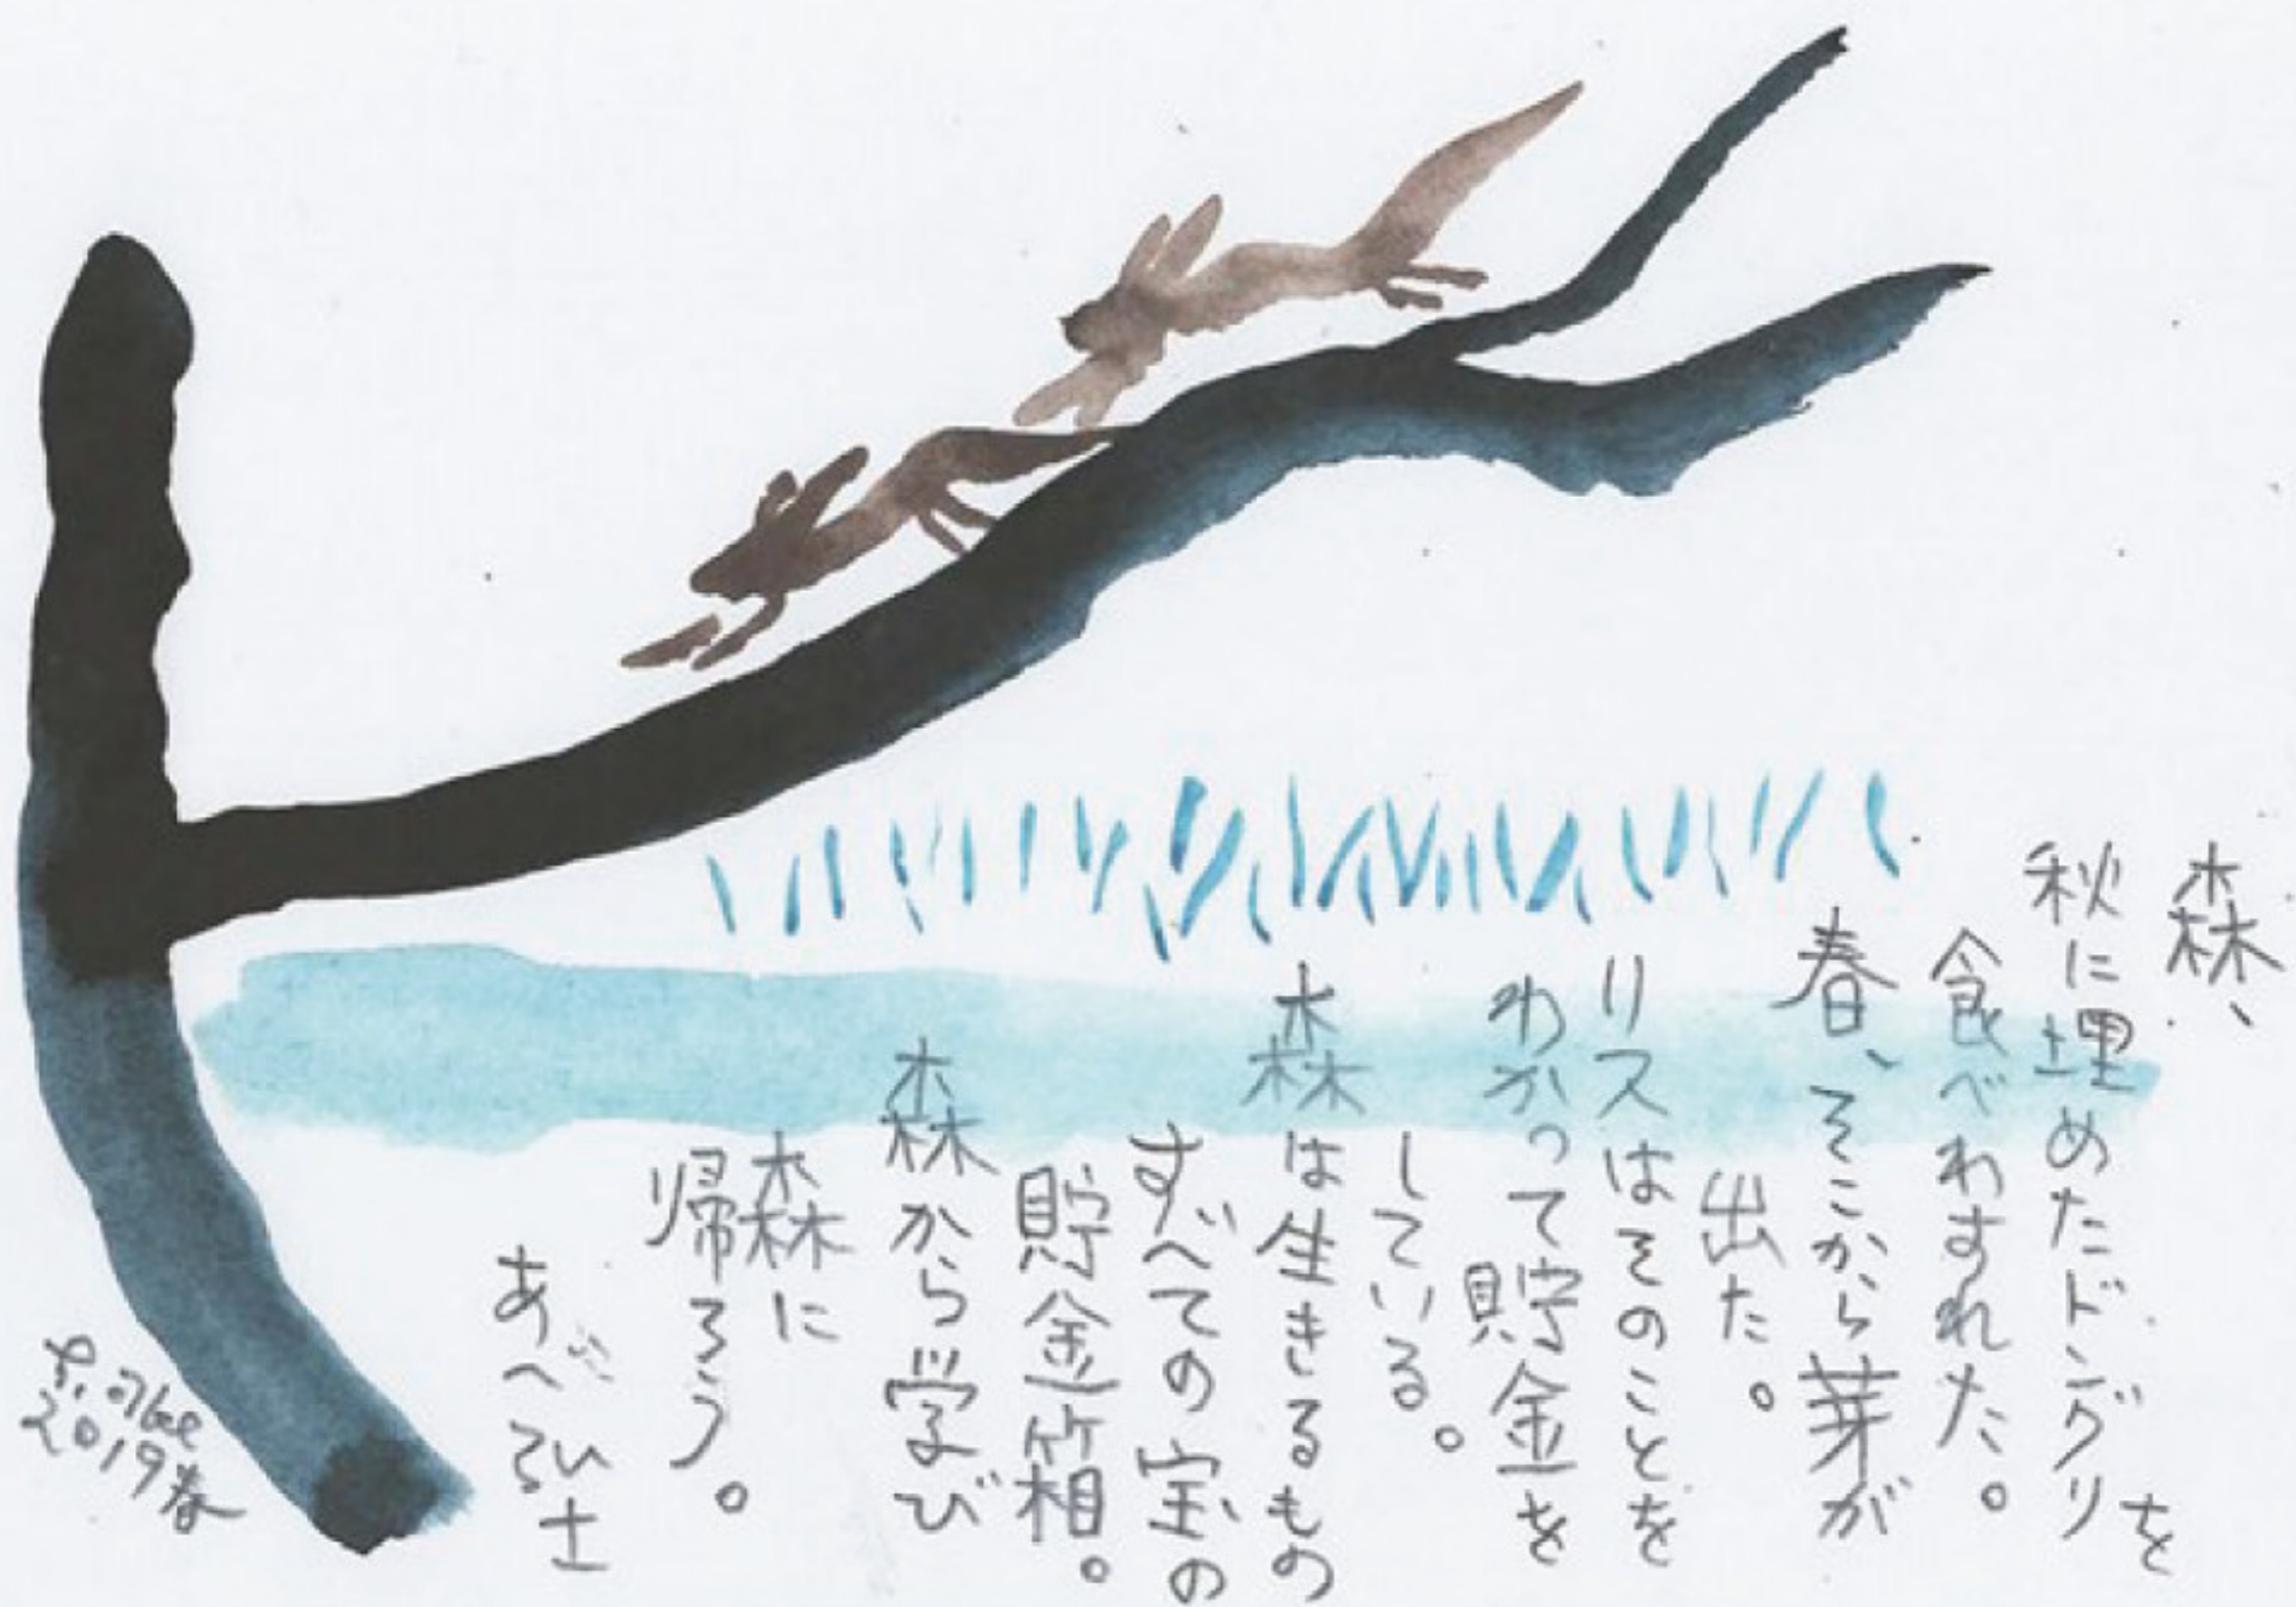 森、
秋に埋めたドングリを
食べわすれた。
春、そこから芽が
出た。
リスはそのことを
わかって貯金を
している。
森は生きるもの
すべての宝の
貯金箱。
森から学び
森に
帰ろう。
あべ弘士
2019春